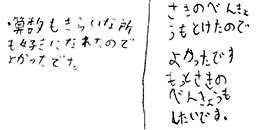 ・算数もきらいな所
も好きになれたので
よかったです。
さきのべんきょ
うもとけたので
よかったです
もっとさきの
べんきょうも
したいです。